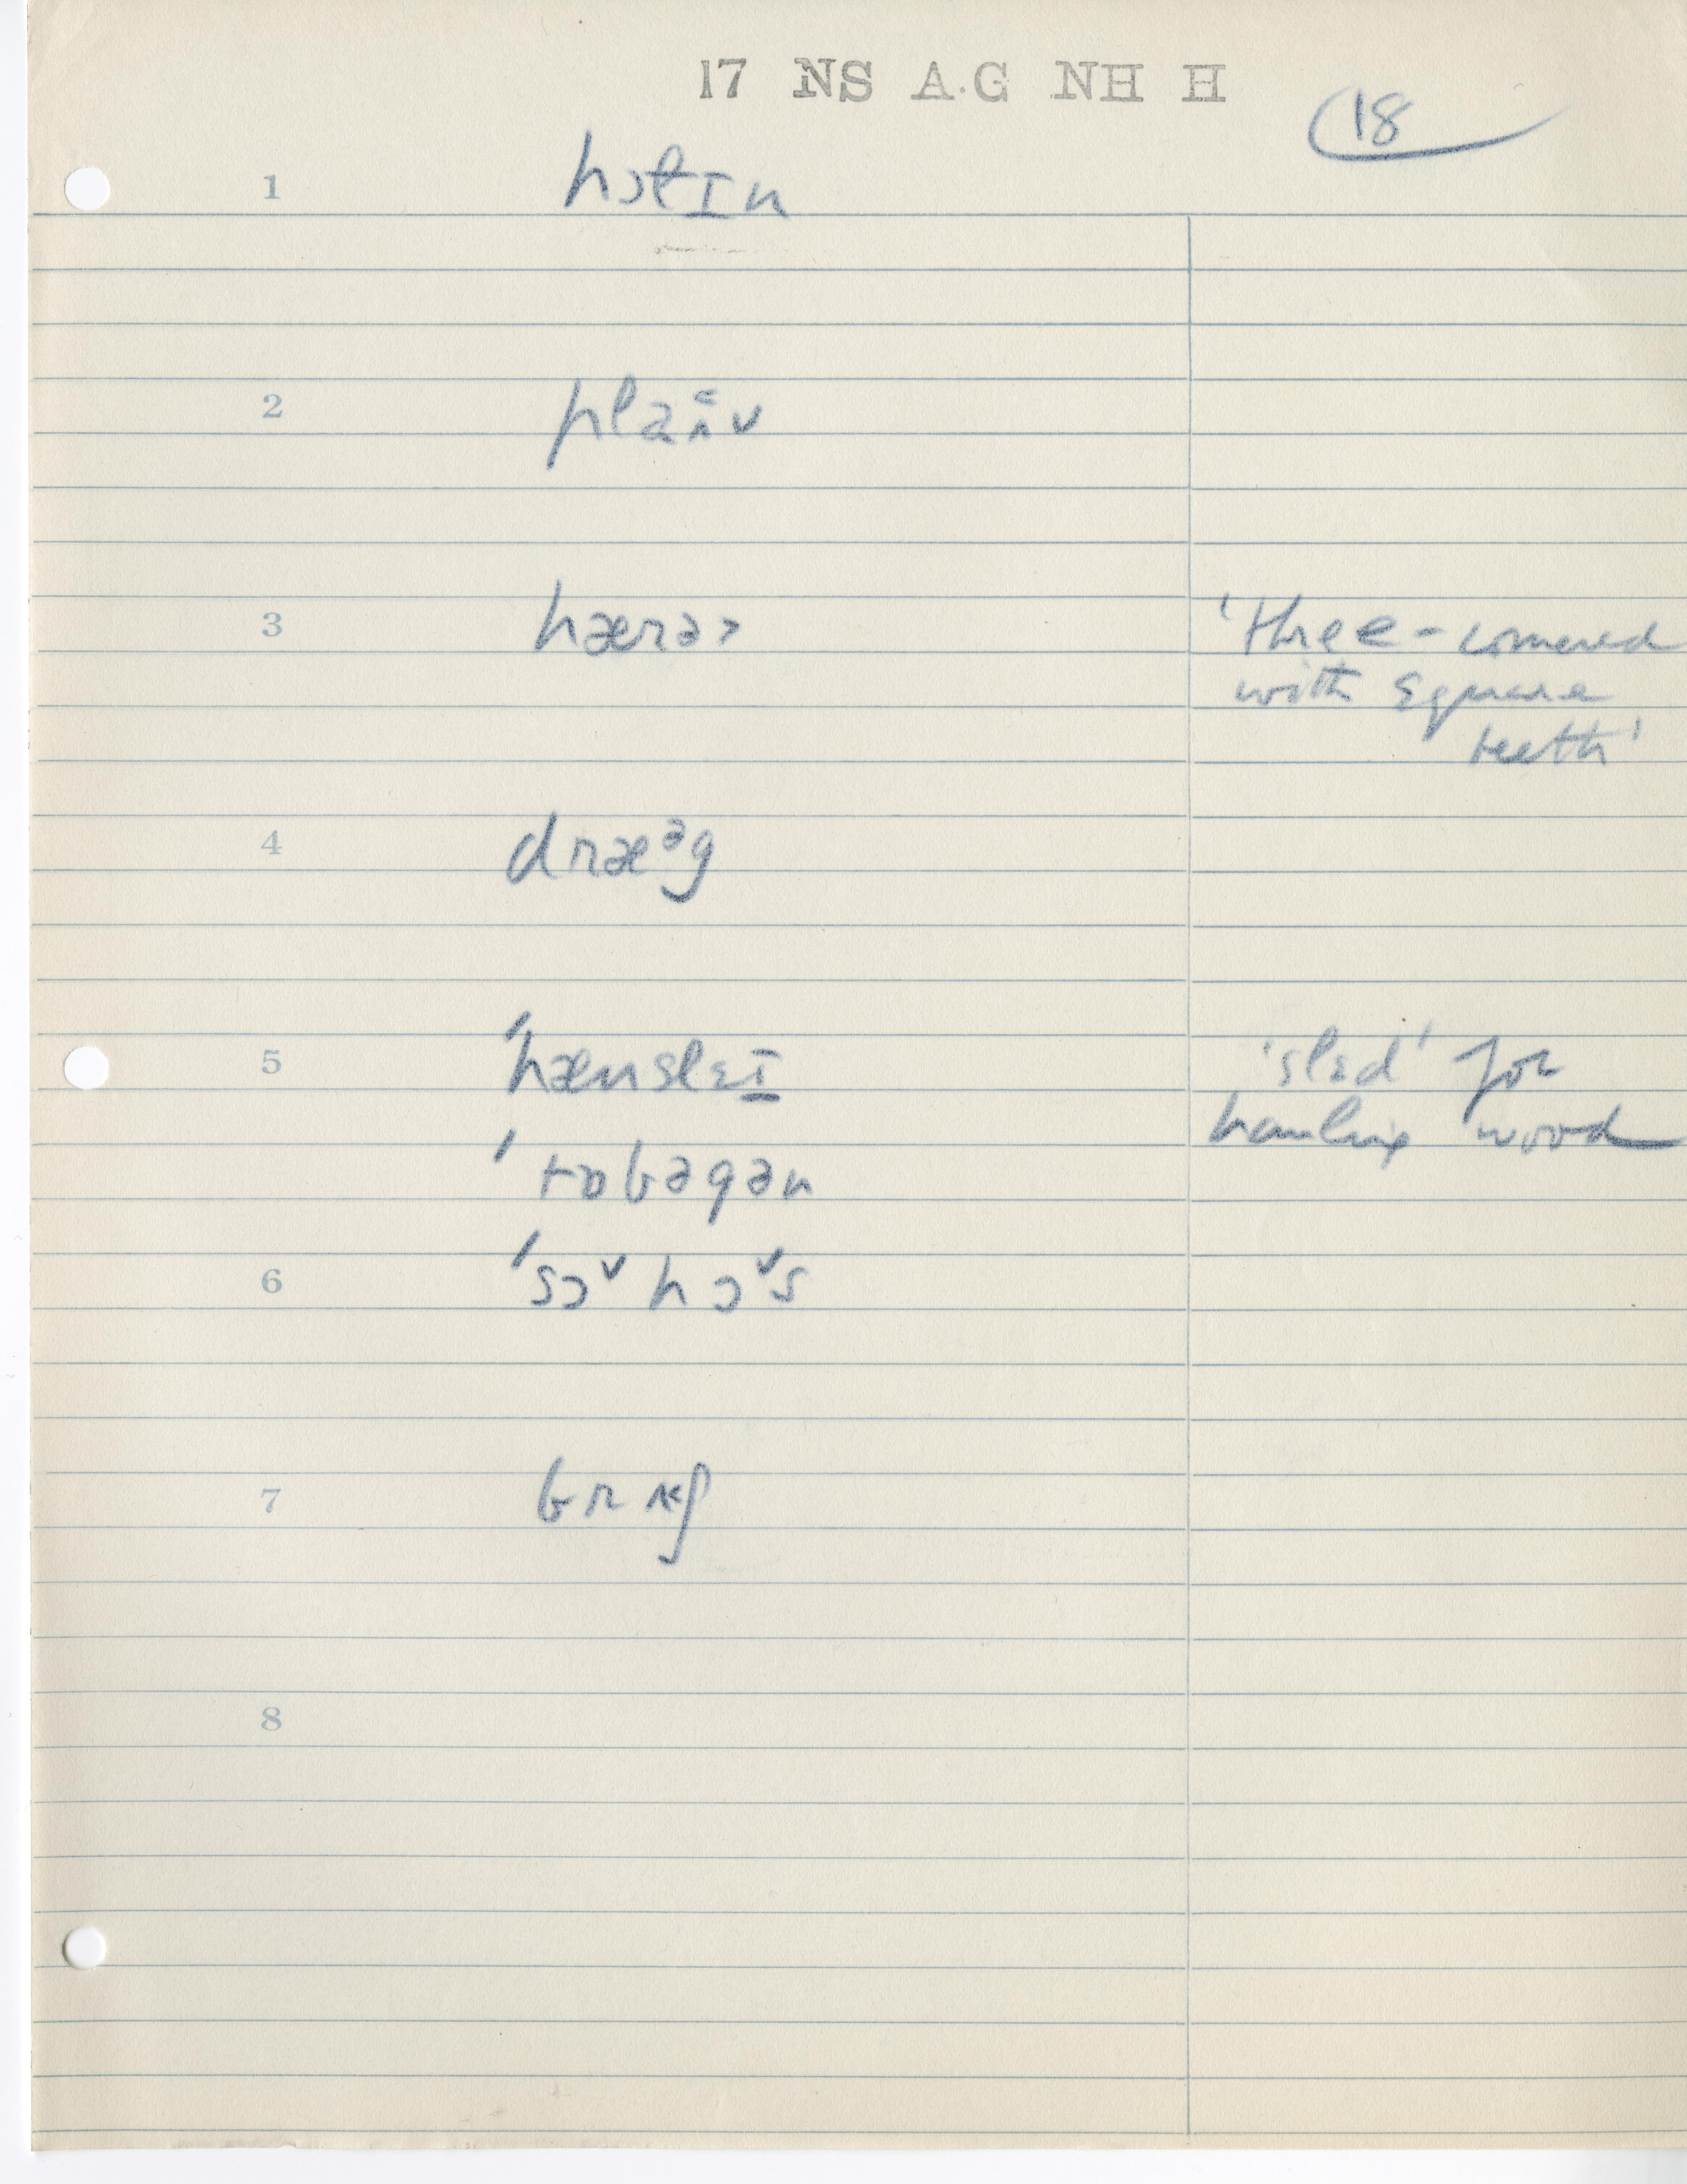 17 NS A.G NH H
18
1 hɔt̵ɪn
2
3 hærə> 'three-cornered
with square
teeth'
4 dræᵊg
5 'hænsleɪ 'sled' for
hauling wood
'tɒbəgən
6 'sɔ˅hɔ˅s
7
8